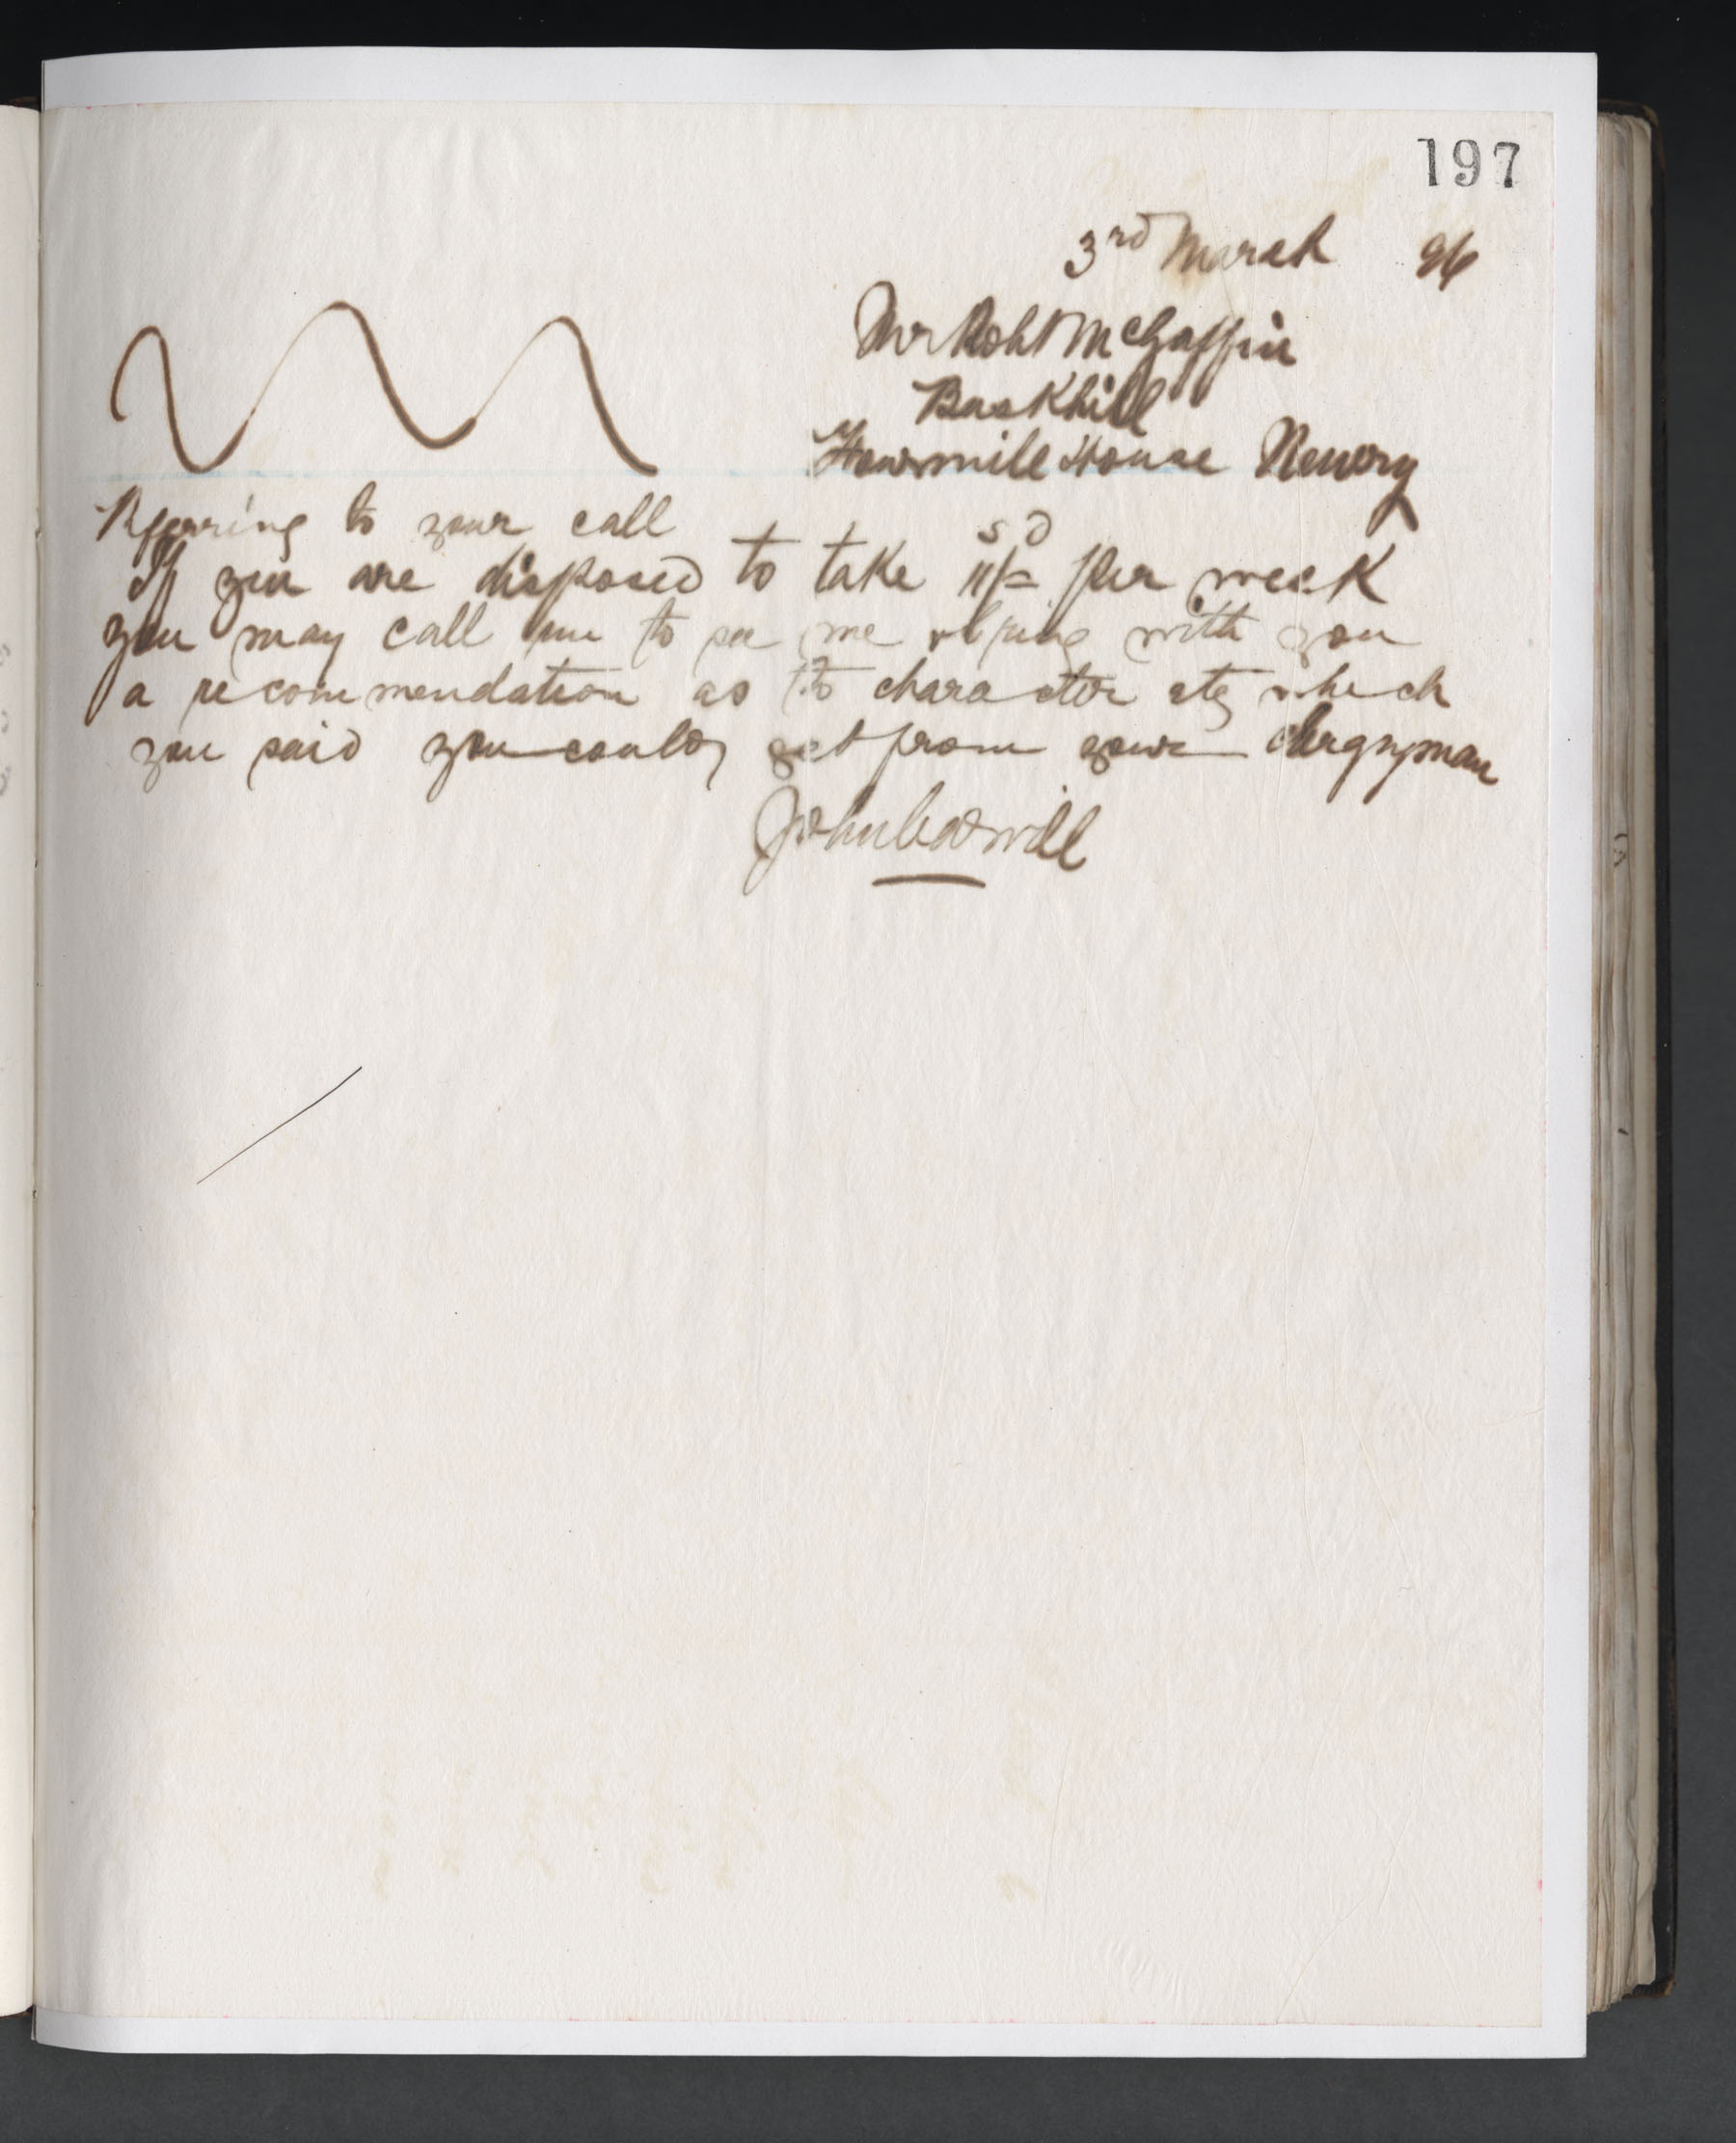 197
3rd March 96
Mr Robt McGaffin
Buskhill
Fourmile House Newry
Referring to your call
If you are disposed to take s d 11/= per week
you may call to see me & bring with you
a recommendation as to character etc which
you said you could get from your clergyman
John Cowdell